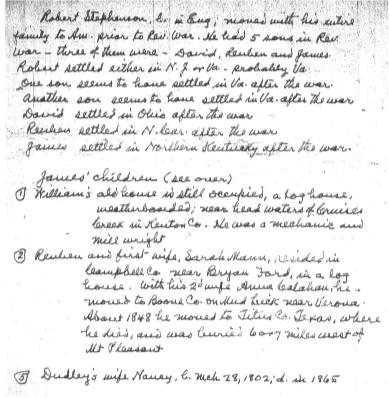 Robert Stephenson, b. in Eng; moved with his entire
family to Am. prior to Rev. War. He had 5 sons in Rev.
War - three of them were - David, Reuben and James.
Robert settled either in N. J. or Va. - probably Va.
One son seems to have settled in Va. after the war.
Another son seems to have settled in Va. after the war
David settled in Ohio after the war
Reuben settled in N. Car. after the war
James settled in Northern Kentucky after the war.
James' children (see over)
① William's old house is still occupied, a log house,
weatherboarded; near head waters of Cruises
Creek in Kenton Co. He was a mechanic and
mill wright
② Reuben and first wife, Sarah Mann, resided in
Campbell Co near Bryan Ford, in a log
house. With his 2d wife Anna Calahan, he
moved to Boone Co. on Mud Lick near Verona.
About 1848 he moved to Titus Co. Texas, where
he died, and was buried 6 or 7 miles west of
Mt Pleasant
⑤ Dudley's wife Nancy, b. Mch 28, 1802; d. in 1865